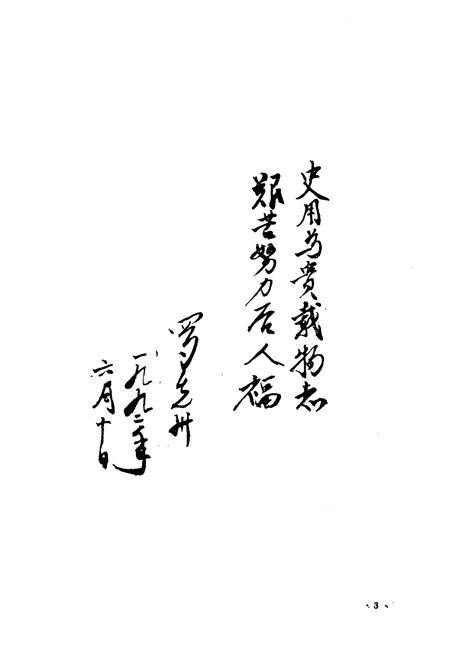 史用为贵载物志
艰苦努力后人福
罗克卅
一九九二年
六月十日
3